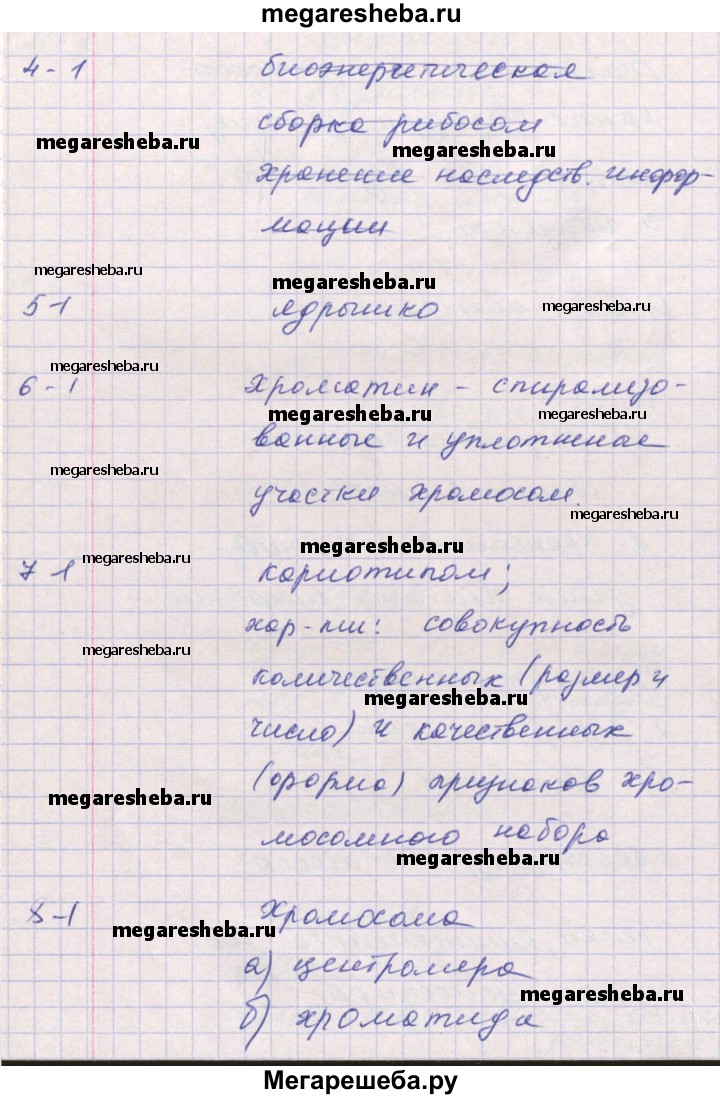 megaresheba.ru
4-1 биоэнергетическая
сборка рибосом
megaresheba.ru
megaresheba.ru
хранение наследств. инфор-
мации
megaresheba.ru
megaresheba.ru
5-1 ядрышко
megaresheba.ru
megaresheba.ru
6-1 Хроматин - спирализо-
megaresheba.ru
megaresheba.ru
ванные и уплотнные
megaresheba.ru
участки хромосом.
megaresheba.ru
megaresheba.ru
megaresheba.ru
7-1 кариотипом;
хар-ки: совокупность
megaresheba.ru
количественных (размер и
megaresheba.ru
число) и качественных
(форма) признаков хро-
megaresheba.ru
мосомного набора
megaresheba.ru
8-1 Хромосома
megaresheba.ru
а) центромера
megaresheba.ru
б) хроматида
Мегарешеба.ру